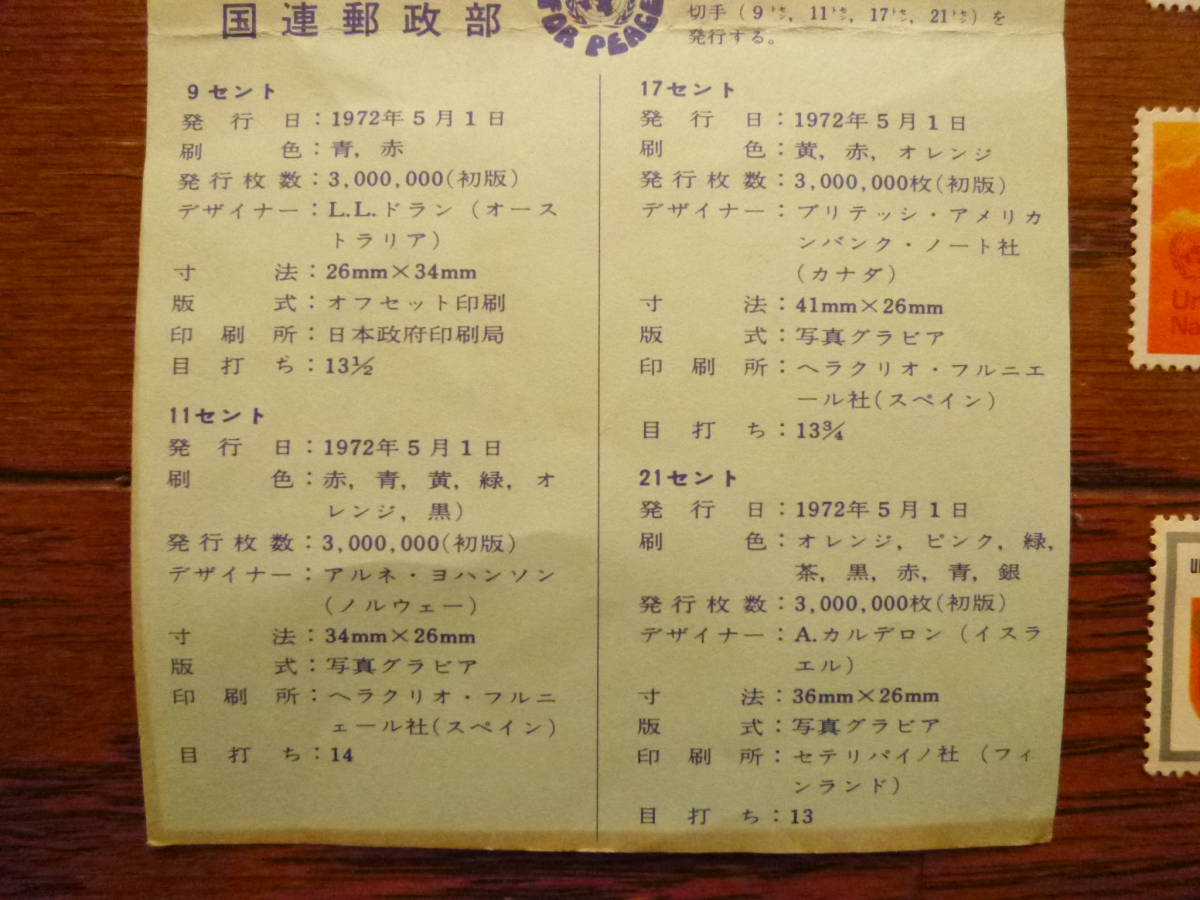 国連郵政部
FOR PEACE
切手（9セント，11セント，17セント，21セント）を
発行する。
9セント
発行日：1972年5月1日
刷色：青，赤
発行枚数：3,000,000(初版)
デザイナー：L.L.ドラン（オース
トラリア）
寸法：26mm×34mm
版式：オフセット印刷
印刷所：日本政府印刷局
目打ち：13½
11セント
発行日：1972年5月1日
刷色：赤，青，黄，緑，オ
レンジ，黒）
発行枚数：3,000,000(初版)
デザイナー：アルネ・ヨハンソン
(ノルウェー)
寸法：34mm×26mm
版式：写真グラビア
印刷所：ヘラクリオ・フルニ
ェール社(スペイン)
目打ち：14
17セント
発行日：1972年5月1日
刷色：黄，赤，オレンジ
発行枚数：3,000,000枚(初版)
デザイナー：ブリテッシ・アメリカ
ンバンク・ノート社
(カナダ)
寸法：41mm×26mm
版式：写真グラビア
印刷所：ヘラクリオ・フルニエ
ール社(スペイン)
目打ち：13¾
21セント
発行日：1972年5月1日
刷色：オレンジ，ピンク，緑，
茶，黒，赤，青，銀
発行枚数：3,000,000枚(初版)
デザイナー：A.カルデロン（イスラ
エル）
寸法：36mm×26mm
版式：写真グラビア
印刷所：セテリパイノ社（フィ
ンランド）
目打ち：13